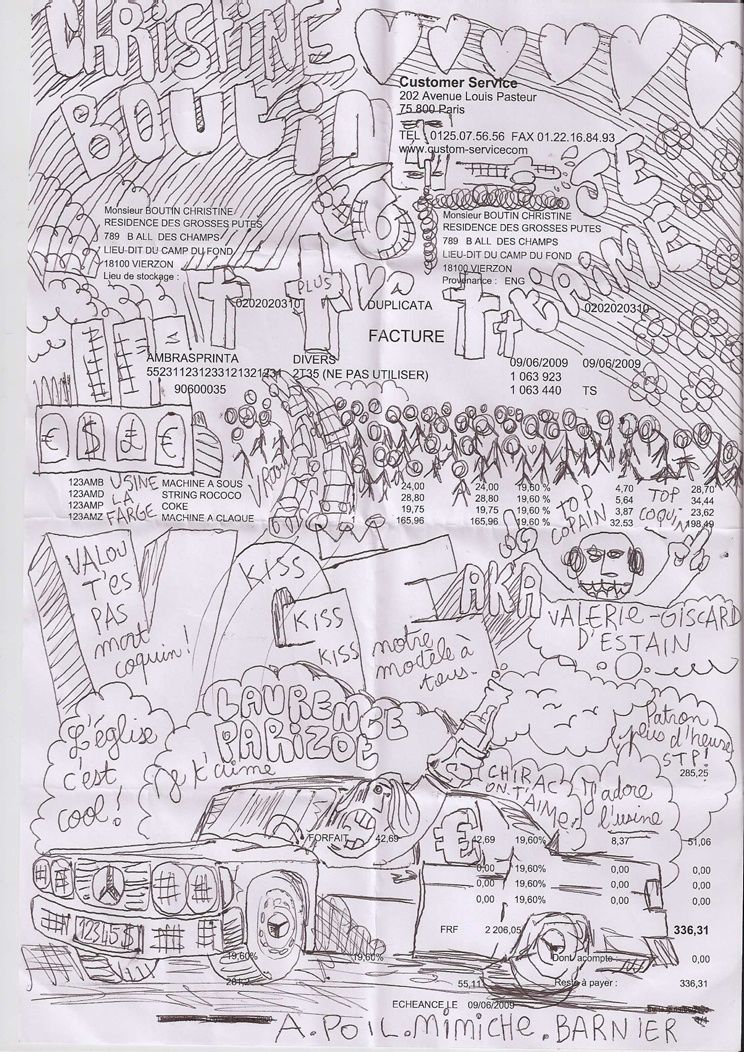 CHRISTINE
BOUTIN
JE
T'AIME
Customer Service
202 Avenue Louis Pasteur
75 800 Paris
TEL : 0125.07.56.56 FAX 01.22.16.84.93
www.custom-servicecom
Monsieur BOUTIN CHRISTINE
RESIDENCE DES GROSSES PUTES
789 B ALL DES CHAMPS
LIEU-DIT DU CAMP DU FOND
18100 VIERZON
Lieu de stockage :
Monsieur BOUTIN CHRISTINE
RESIDENCE DES GROSSES PUTES
789 B ALL DES CHAMPS
LIEU-DIT DU CAMP DU FOND
18100 VIERZON
Provenance : ENG
PLUS
0202020310 DUPLICATA 0202020310
FACTURE
AMBRASPRINTA DIVERS 09/06/2009 09/06/2009
55231123123312132123 2T35 (NE PAS UTILISER) 1 063 923
90600035 1 063 440 TS
€ $ £ €
123AMB MACHINE A SOUS 24,00 24,00 19,60 % 4,70 28,70
123AMD STRING ROCOCO 28,80 28,80 19,60 % 5,64 34,44
123AMP COKE 19,75 19,75 19,60 % 3,87 23,62
123AMZ MACHINE A CLAQUE 165,96 165,96 19,60 % 32,53 198,49
USINE
LA
FARGE
TOP
COPAIN
TOP
COQUIN
VGE
VALOU
T'es
PAS
mort
coquin!
KISS
KISS
KISS
notre
modèle à
tous.
AKA
VALERIE-GISCARD
D'ESTAIN
L'église
c'est
cool!
LAURENCE
PARIZOE
je t'aime
CHIRAC
ON T'AIME
J'adore
l'usine
Patron
plus d'heuse
STP!
285,25
FORFAIT 42,69 € 42,69 19,60% 8,37 51,06
0,00 19,60% 0,00 0,00
0,00 19,60% 0,00 0,00
0,00 19,60% 0,00 0,00
FRF 2 206,05 336,31
12345$
19,60% 19,60% Dont acompte : 0,00
55,11 Reste à payer : 336,31
ECHEANCE LE 09/06/2009
A.POIL.MIMICHE.BARNIER